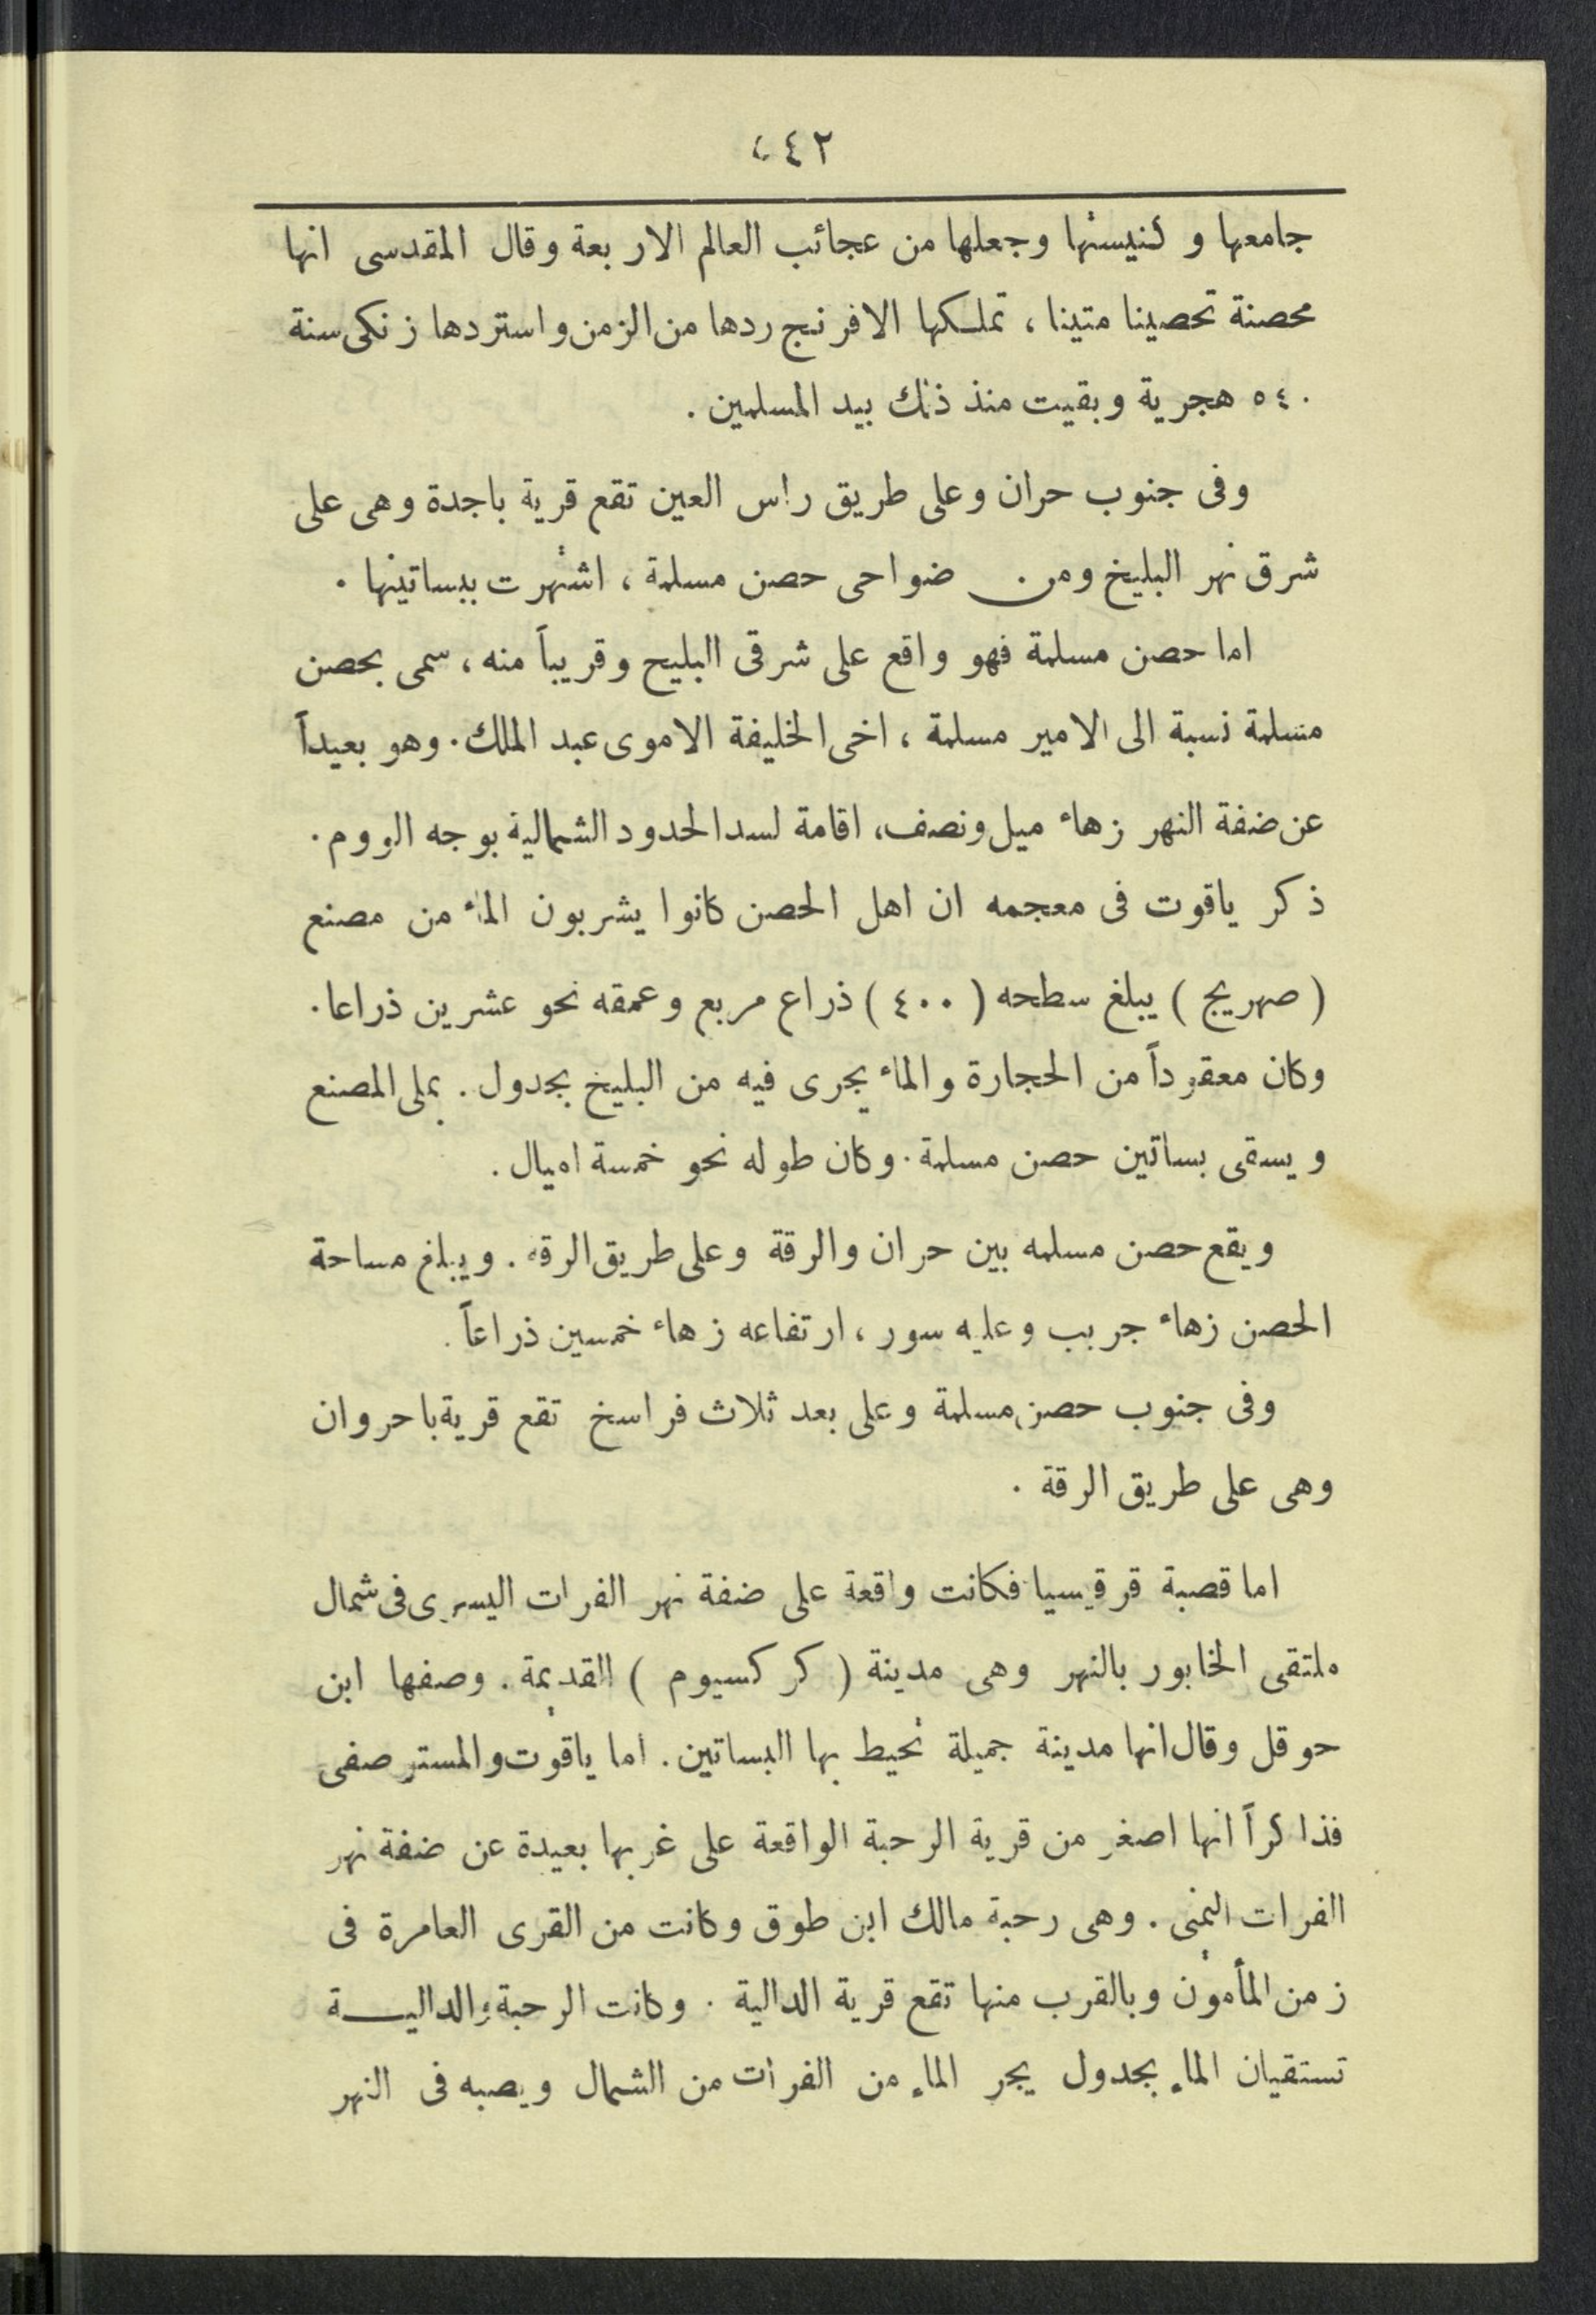 ٤٤٢
جامعها و كنيستها وجعلها من عجائب العالم الاربعة وقال المقدسى انها
محصنة تحصينا متينا ، تملكها الافرنج ردها من الزمن واستردها زنكى سنة
٥٤٠ هجرية وبقيت منذ ذلك بيد المسلمين .
وفى جنوب حران وعلى طريق راس العين تقع قرية باجدة وهى على
شرق نهر البليخ ومن ضواحى حصن مسلمة ، اشتهرت ببساتينها .
اما حصن مسلمة فهو واقع على شرقى البليح وقريباً منه ، سمى بحصن
مسلمة نسبة الى الامير مسلمة ، اخى الخليفة الاموى عبد الملك . وهو بعيداً
عن ضفة النهر زهاء ميل ونصف ، اقامة لسد الحدود الشمالية بوجه الروم .
ذكر ياقوت فى معجمه ان اهل الحصن كانوا يشربون الماء من مصنع
( صهريج ) يبلغ سطحه ( ٤٠٠ ) ذراع مربع وعمقه نحو عشرين ذراعا .
وكان معقوداً من الحجارة والماء يجرى فيه من البليخ بجدول . يملى المصنع
ويسقى بساتين حصن مسلمة . وكان طوله نحو خمسة اميال .
ويقع حصن مسلمه بين حران والرقة وعلى طريق الرقه . ويبلغ مساحة
الحصن زهاء جريب وعليه سور ، ارتفاعه زهاء خمسين ذراعاً .
وفى جنوب حصن مسلمة وعلى بعد ثلاث فراسخ تقع قرية باحروان
وهى على طريق الرقة .
اما قصبة قرقيسيا فكانت واقعة على ضفة نهر الفرات اليسرى فى شمال
ملتقى الخابور بالنهر وهى مدينة ( كركسيوم ) القديمة . وصفها ابن
حوقل وقال انها مدينة جميلة تحيط بها البساتين . اما ياقوت والمسترصفى
فذاكراً انها اصغر من قرية الرحبة الواقعة على غربها بعيدة عن ضفة نهر
الفرات اليمنى . وهى رحبة مالك ابن طوق وكانت من القرى العامرة فى
زمن المأمون وبالقرب منها تقع قرية الدالية . وكانت الرحبة والداليـــة
تستقيان الماء بجدول يجر الماء من الفرات من الشمال ويصبه فى النهر